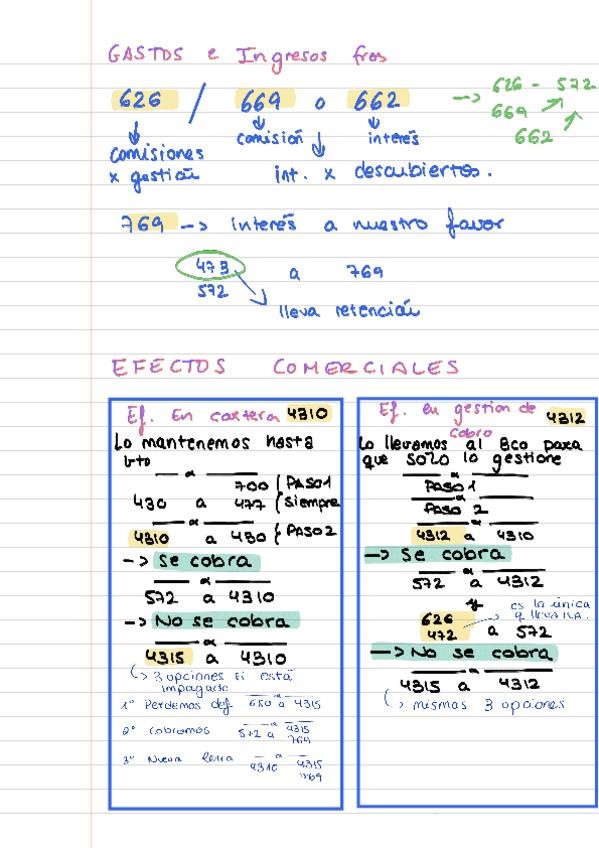 GASTOS e Ingresos fros
626 / 669 o 662 -> 626 - 572
669
662
comisiones x gestión
comisión
interés
int. x descubiertos.
769 -> interés a nuestro favor
473 a 769
572
lleva retención
EFECTOS COMERCIALES
Ef. En cartera 4310
Lo mantenemos hasta
vto
700 PASO 1
430 a 477 Siempre
4310 a 430 PASO 2
-> Se cobra
572 a 4310
-> No se cobra
4315 a 4310
3 opciones si está
impagado
1º Perdemos def 650 a 4315
2º Cobramos 572 a 4315
769
3º Nueva letra 4310 a 4315
769
Ef. en gestion de cobro 4312
Lo llevamos al Bco para
que SOLO lo gestione
PASO 1
PASO 2
4312 a 4310
-> Se cobra
572 a 4312
y
626
472 a 572
es la única
q lleva IVA.
-> No se cobra
4315 a 4312
mismas 3 opciones